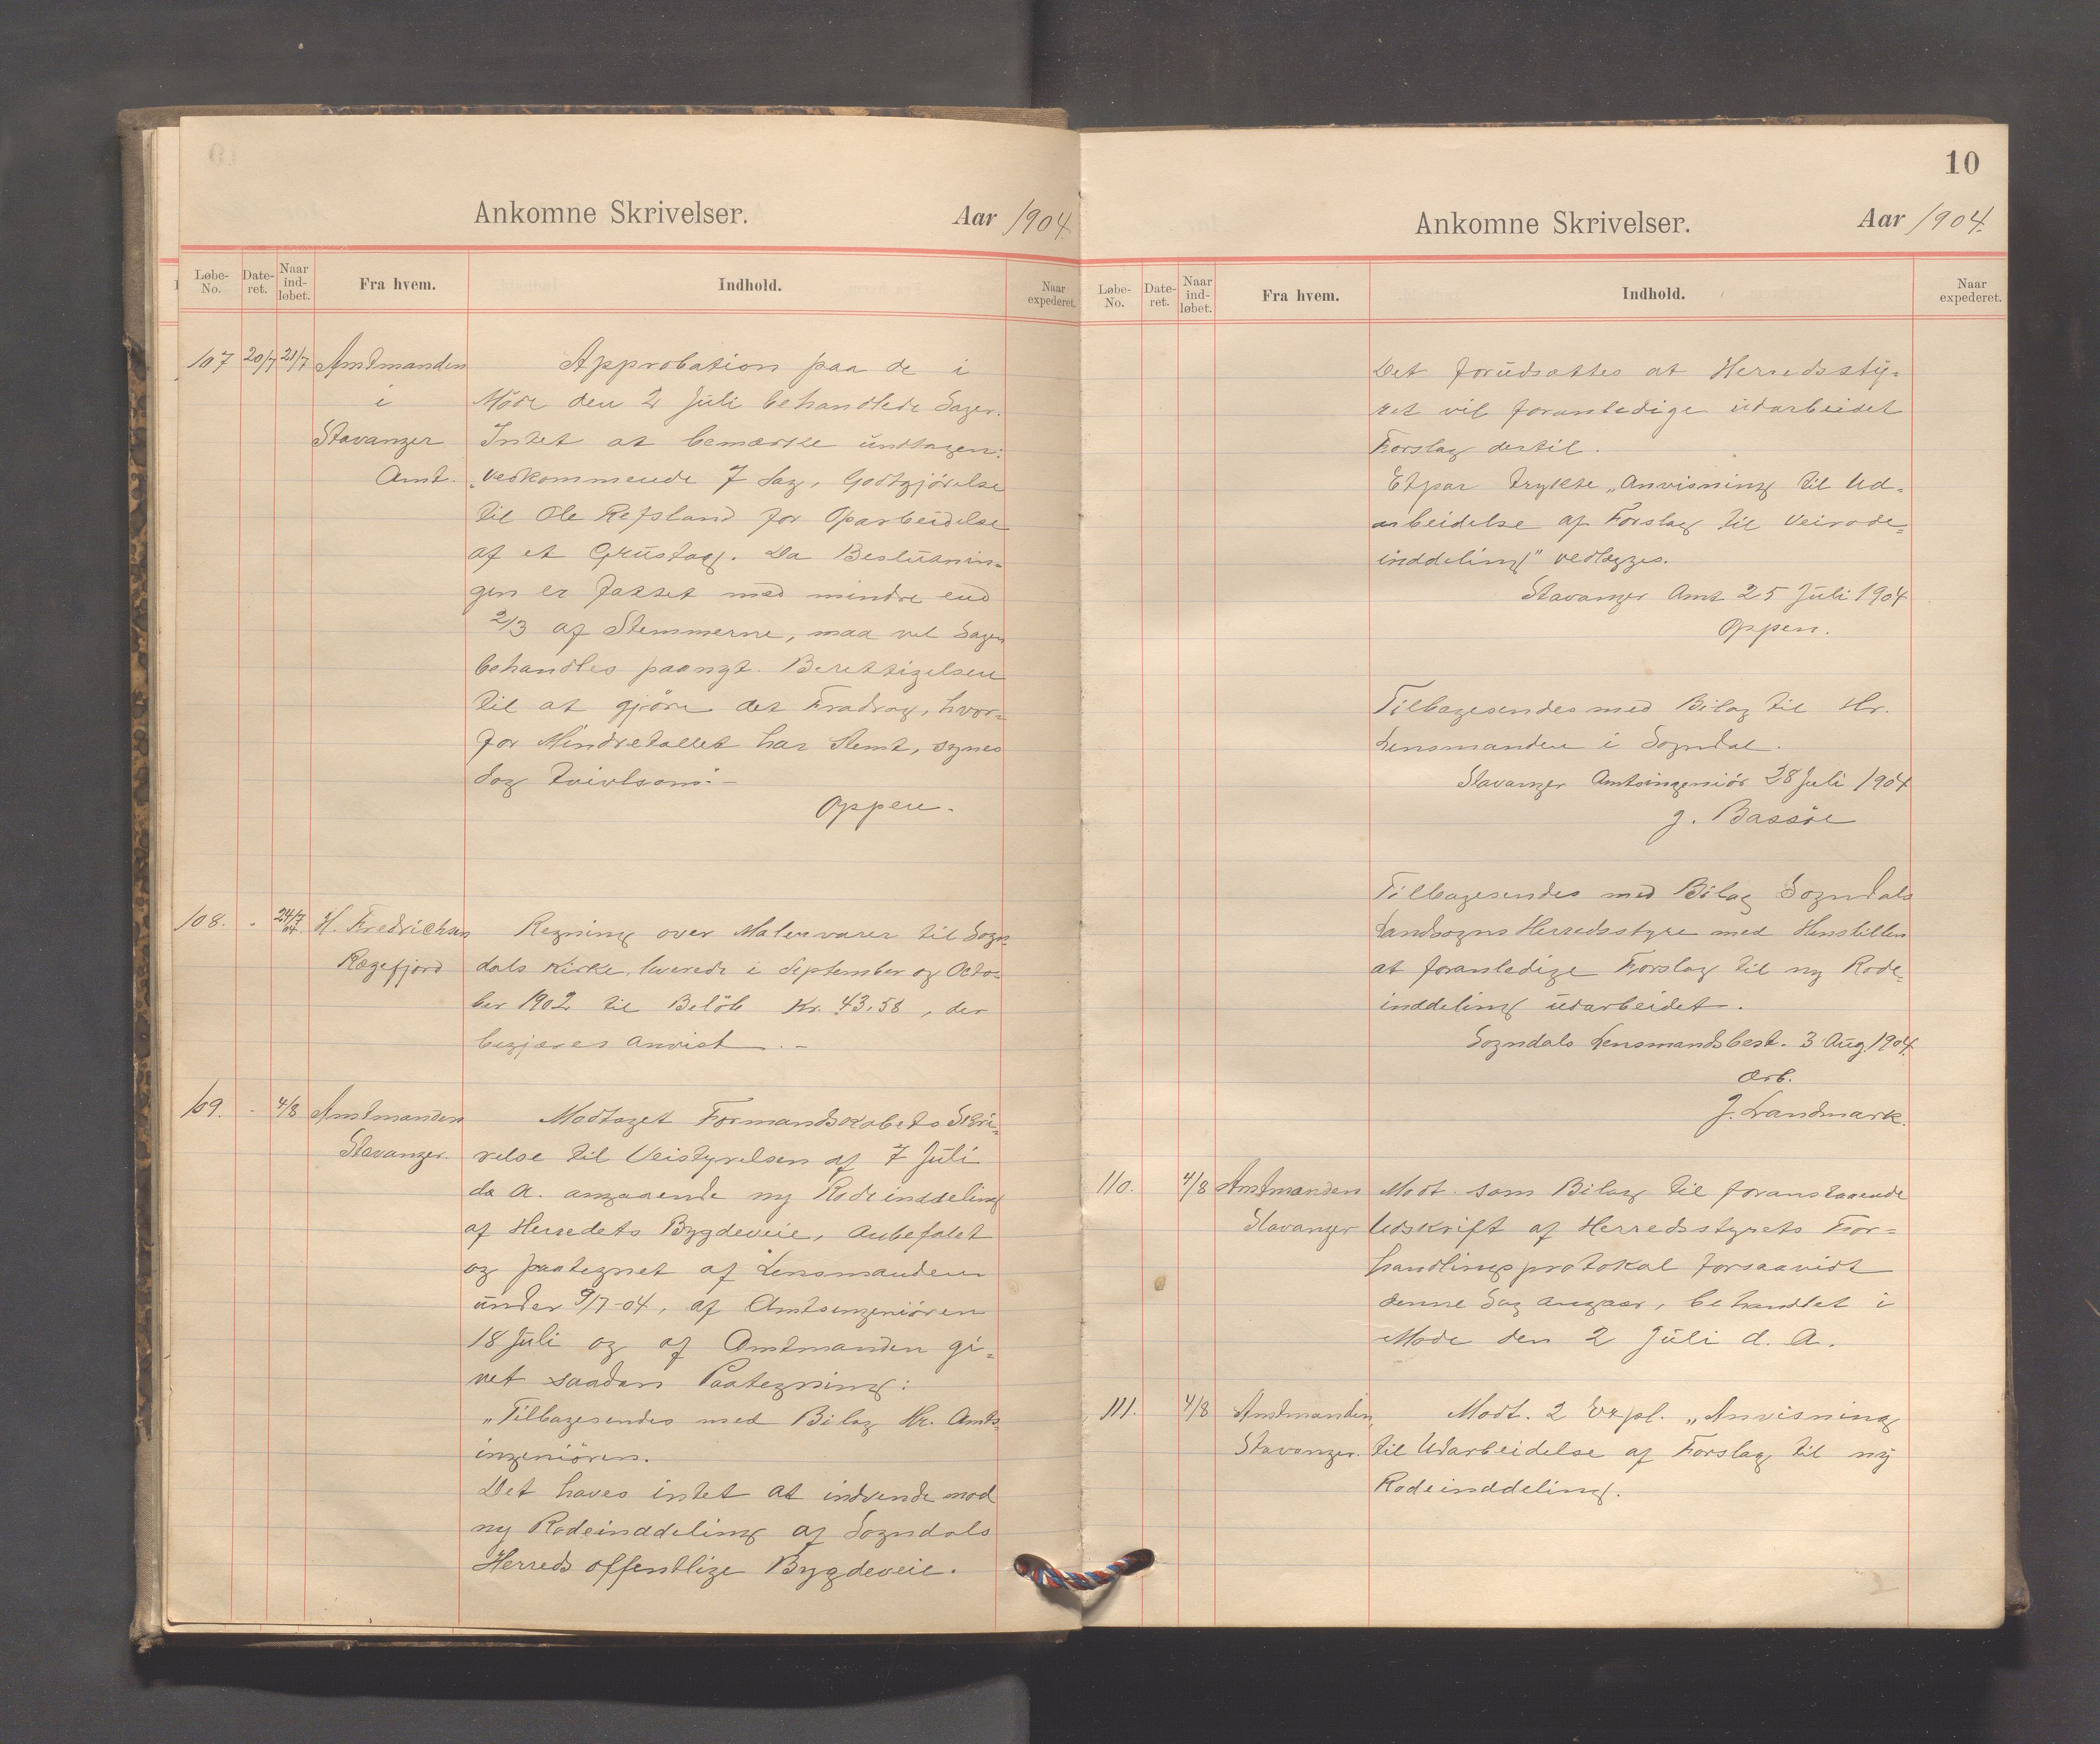 Ankomne Skrivelser.
Aar 1904.
Løbe-No.
Date-ret.
Naar ind-løbet.
Fra hvem.
Indhold.
Naar expederet.
107 20/7 21/7 Amtmanden i Stavanger Amt.
Approbation paa de i
Møde den 2 Juli behandlede Sager.
Intet at bemærke undtagen:
„Vedkommende 7 Sag, Godtgjörelse
til Ole Refsland for Oparbeidelse
af et Grustag. Da Beslutnin-
gen er fattet med mindre end
2/3 af Stemmerne, maa vel Sagen
behandles paanyt. Berettigelsen
til at gjöre det Fradrag, hvor-
for Mindretallet har stemt, synes
dog tvivlsom." -
Oppen.
108. - 24/7 04. H. Fredrichsen Rægefjord
Regning over Malervarer til Sogn-
dals Kirke, leverede i September og Octo-
ber 1902 til Beløb Kr. 43.58, der
begjæres anvist. -
109. - 4/8 Amtmanden Stavanger.
Modtaget Formandskabets Skri-
velse til Veistyrelsen af 7 Juli
da A. angaaende ny Rodeinddeling
af Herredets Bygdeveie, anbefalet
og paategnet af Lensmanden
under 9/7-04, af Amtsingeniören
18 Juli og af Amtmanden gi-
vet saadan Paategning:
„Tilbagesendes med Bilag Hr. Amts-
ingeniören.
Det haves intet at indvende mod
ny Rodeinddeling af Sogndals
Herreds offentlige Bygdeveie.
10
Ankomne Skrivelser.
Aar 1904.
Løbe-No.
Date-ret.
Naar ind-løbet.
Fra hvem.
Indhold.
Naar expederet.
Det forudsættes at Herredssty-
ret vil foranledige udarbeidet
Forslag dertil.
Etpar trykte „Anvisning til Ud-
arbeidelse af Forslag til Veirode-
inddeling" vedlægges.
Stavanger Amt 25 Juli 1904
Oppen.
Tilbagesendes med Bilag til Hr.
Lensmanden i Sogndal.
Stavanger Amtsingeniör 28 Juli 1904
J. Bassöe
Tilbagesendes med Bilag Sogndals
Landsogns Herredsstyre med Henstillen
at foranledige Forslag til ny Rode-
inddeling udarbeidet.
Sogndals Lensmandsbest. 3 Aug. 1904.
Ærb.
J. Landmark.
110. 4/8 Amtmanden Stavanger
Modt. som Bilag til foranstaaende
Udskrift af Herredsstyrets For-
handlingsprotokol forsaavidt
denne Sag angaar, behandlet i
Møde den 2 Juli d. A.
111. 4/8 Amtmanden Stavanger.
Modt. 2 Expl. „Anvisning
til Udarbeidelse af Forslag til ny
Rodeinddeling.